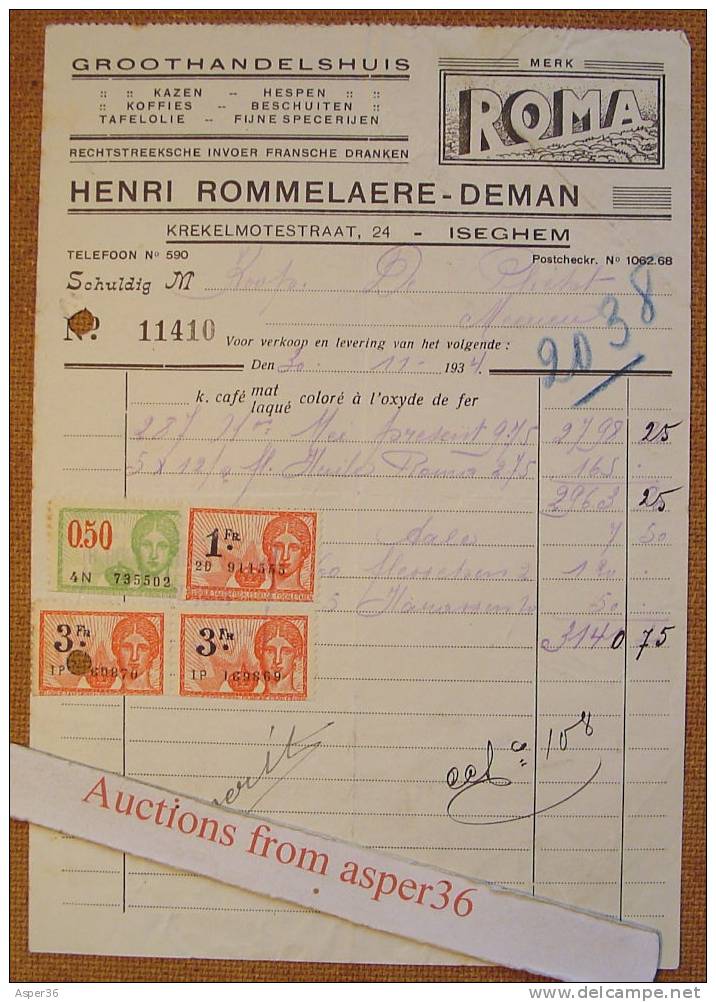 GROOTHANDELSHUIS
KAZEN -- HESPEN
KOFFIES -- BESCHUITEN
TAFELOLIE -- FIJNE SPECERIJEN
RECHTSTREEKSCHE INVOER FRANSCHE DRANKEN
MERK
ROMA
HENRI ROMMELAERE-DEMAN
KREKELMOTESTRAAT, 24 - ISEGHEM
TELEFOON No 590
Postcheckr. No 1062.68
Schuldig M Koop. De
No. 11410
2038
Voor verkoop en levering van het volgende :
Den 30 - 11 - 1934.
k. café mat laqué coloré à l'oxyde de fer
287 975 2798 25
5 x 12/2 fl. Huile Roma 275 165 .
2963 25
0.50
4N 735502
1 FR.
2D 911555
7 50
120 .
50 .
3140 75
3 FR.
1P 69870
3 FR.
1P 169869
108
Auctions from asper36
Asper36
delcampe.net